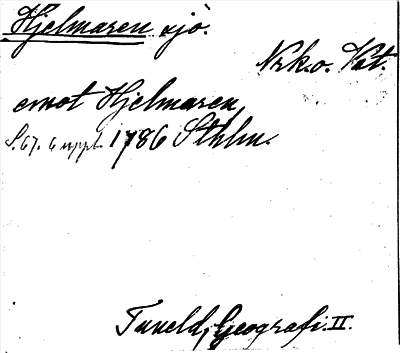 Hjelmaren sjö.
Nrk. o. Vat.
emot Hjelmaren,
S. 67. 6 uppl. 1786 Sthlm.
Tuneld, Geografi. II.